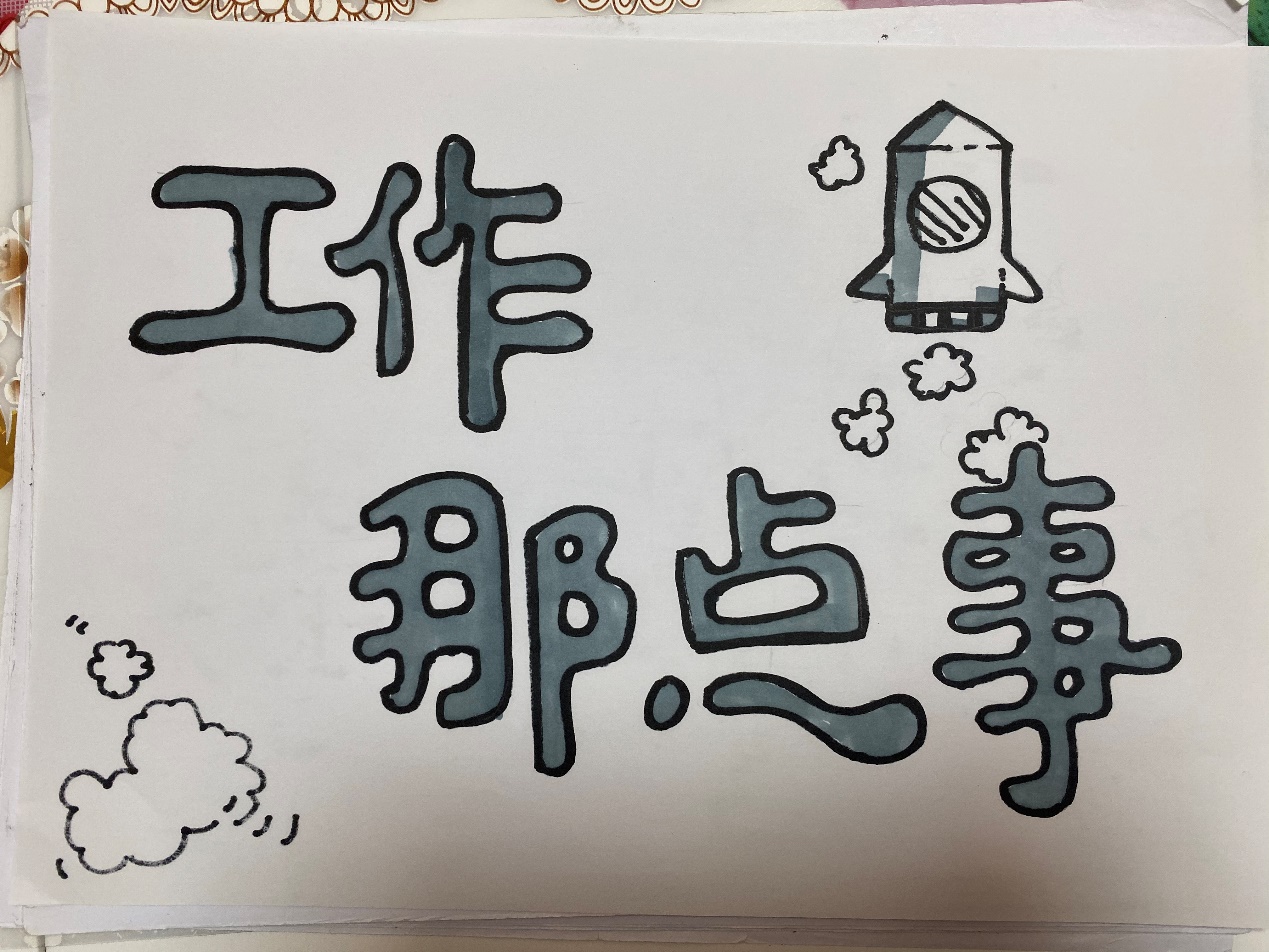 工作
那点事